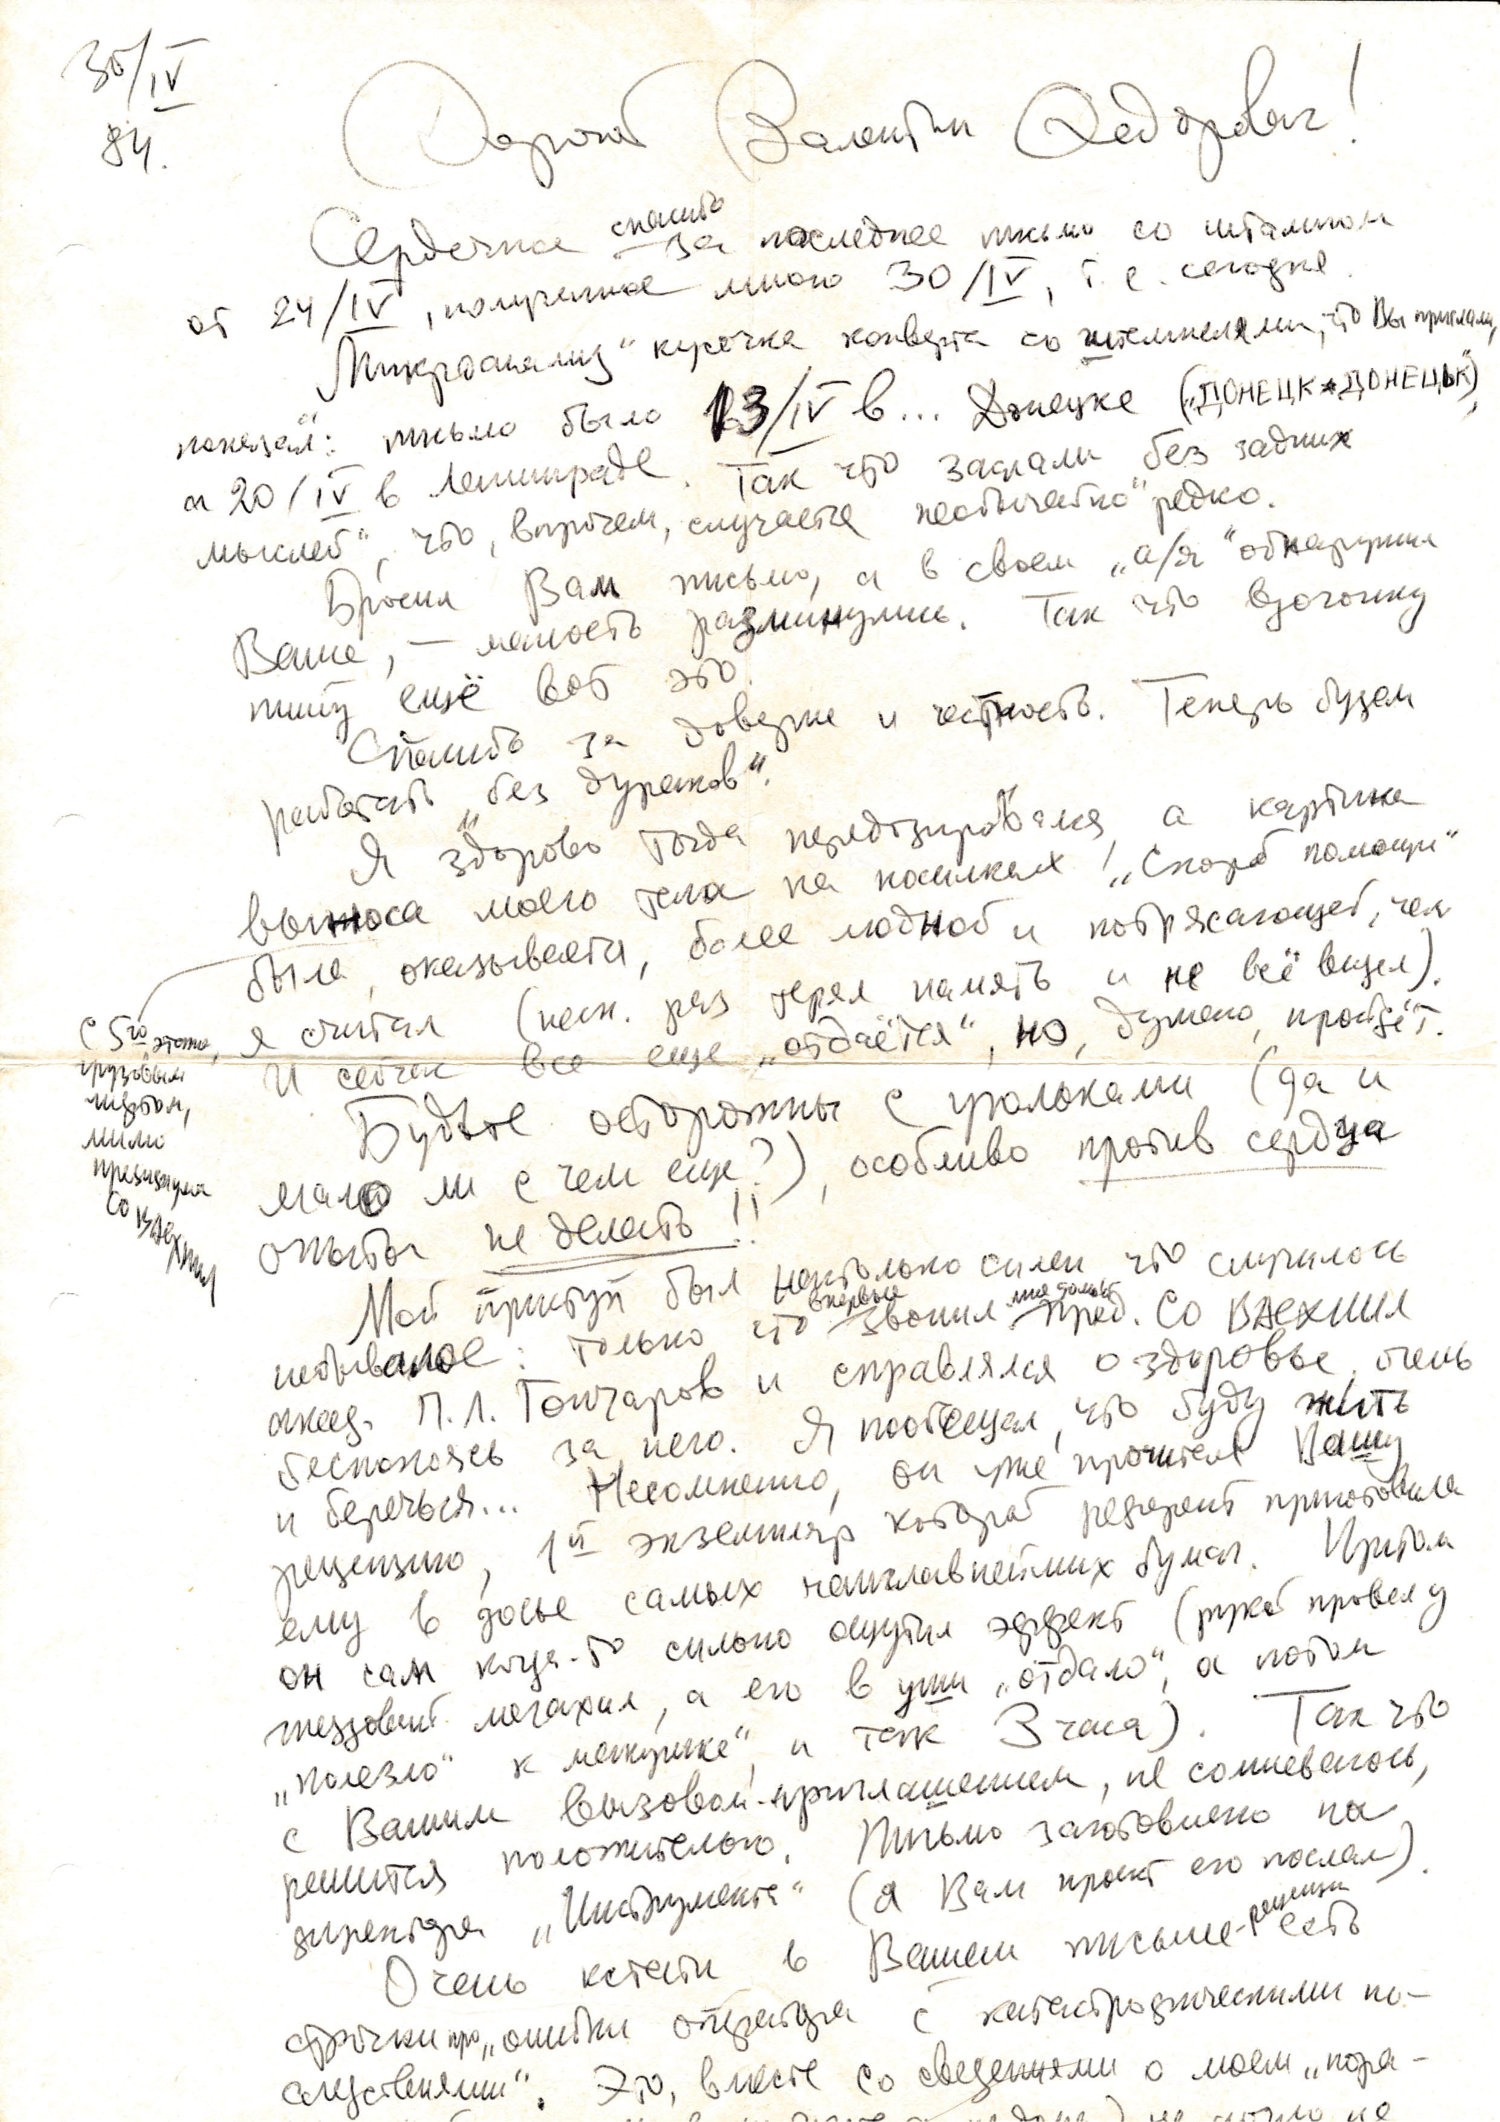 30/IV
84.
Дорогой Валентин Федорович!
Сердечное спасибо за последнее письмо со штампом
от 24/IV, полученное мною 30/IV, т.е. сегодня.
„Микроанализ" кусочка конверта со штемпелями, что Вы прислали,
показал: письмо было 13/IV в... Донецке („ДОНЕЦК * ДОНЕЦЬК"),
а 20/IV в Ленинграде. Так что заслали „без задних
мыслей", что, впрочем, случается необычайно редко.
Бросил Вам письмо, а в своем „а/я" обнаружил
Ваше, — малость разминулись. Так что вдогонку
пишу ещё вот это.
Спасибо за доверие и честность. Теперь будем
работать „без дураков".
Я здорово тогда передозировался, а картина
выноса моего тела на носилках „Скорой помощи"
была, оказывается, более людной и потрясающей, чем
я считал (неск. раз терял память и не всё видел).
И сейчас все еще „отдаётся", но, думаю, пройдёт.
с 5го этажа,
грузовым
лифтом,
мимо
президиума
СО ВАСХНИЛ
Будьте осторожны с уголками (да и
мало ли с чем еще?), особливо против сердца
опыты не делать!!
Мой приступ был настолько силен что случилось
небывалое: только что впервые звонил мне домой пред. СО ВАСХНИЛ
акад. П.Л. Гончаров и справлялся о здоровье, очень
беспокоясь за него. Я пообещал, что буду жить
и беречься... Несомненно, он уже прочитал Вашу
рецензию, 1й экземпляр которой референт приготовила
ему в досье самых наиглавнейших бумаг. Притом
он сам когда-то сильно ощутил эффект (рукой провел у
гнездовий мегахил, а его в уши „отдало", а потом
„полезло" к макушке", и так 3 часа). Так что
с Вашим вызовом-приглашением, не сомневаюсь,
решится положительно. Письмо заготовлено на
директора „Инструмента" (я Вам проект его послал).
Очень кстати в Вашем письме-рецензии есть
строчки про „ошибки оператора с катастрофическими по-
следствиями". Это, вместе со сведениями о моем „пора-